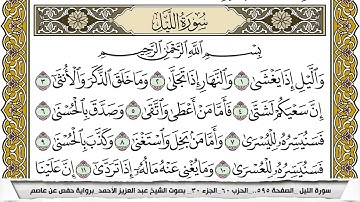 سُورَةُ اللَّيْلِ
بِسْمِ اللَّهِ الرَّحْمَٰنِ الرَّحِيمِ
وَالَّيْلِ إِذَا يَغْشَىٰ ١ وَالنَّهَارِ إِذَا تَجَلَّىٰ ٢ وَمَا خَلَقَ الذَّكَرَ وَالْأُنثَىٰ ٣
إِنَّ سَعْيَكُمْ لَشَتَّىٰ ٤ فَأَمَّا مَنْ أَعْطَىٰ وَاتَّقَىٰ ٥ وَصَدَّقَ بِالْحُسْنَىٰ ٦
فَسَنُيَسِّرُهُ لِلْيُسْرَىٰ ٧ وَأَمَّا مَن بَخِلَ وَاسْتَغْنَىٰ ٨ وَكَذَّبَ بِالْحُسْنَىٰ ٩
فَسَنُيَسِّرُهُ لِلْعُسْرَىٰ ١٠ وَمَا يُغْنِي عَنْهُ مَالُهُ إِذَا تَرَدَّىٰ ١١ إِنَّ عَلَيْنَا
سورة الليل _ الصفحة ٥٩٥ _ الحزب ٦٠ _ الجزء ٣٠ _ بصوت الشيخ عبد العزيز الأحمد _ برواية حفص عن عاصم